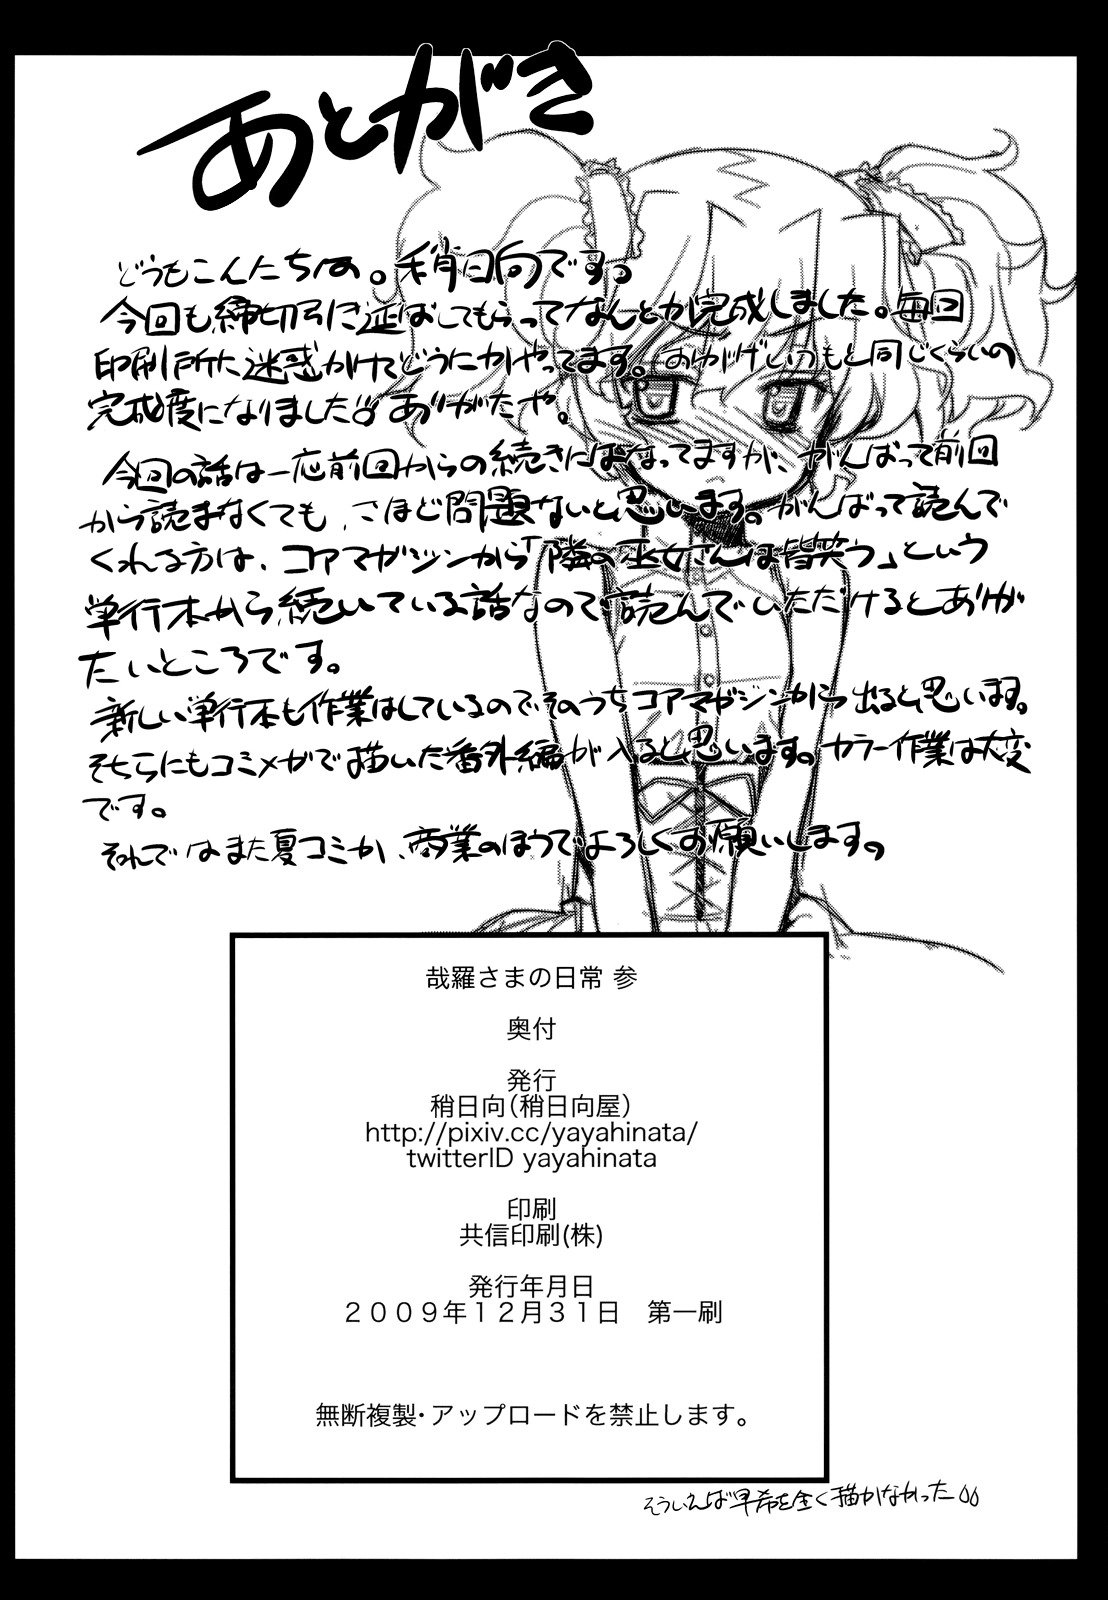 あとがき
どうもこんにちは。稍日向です。
今回も締切りに延ばしてもらってなんとか完成しました。毎回
印刷所に迷惑かけてどうにかやってます。おかげでいつもと同じくらいの
完成度になりました。ありがたや。
今回の話は一応前回からの続きにはなってますが、がんばって前回
から読まなくても、さほど問題ないと思います。がんばって読んで
くれる方は、コアマガジンから「隣の巫女さんは皆笑う」という
単行本から続いている話なので読んでいただけるとありが
たいところです。
新しい単行本も作業はしているのでそのうちコアマガジンから出ると思います。
そちらにもコミメガで描いた番外編が入ると思います。カラー作業は大変
です。
それではまた夏コミか、商業のほうでよろしくお願いします。
哉羅さまの日常 参
奥付
発行
稍日向(稍日向屋)
http://pixiv.cc/yayahinata/
twitterID yayahinata
印刷
共信印刷(株)
発行年月日
２００９年１２月３１日　第一刷
無断複製・アップロードを禁止します。
そういえば早希を全く描かなかった